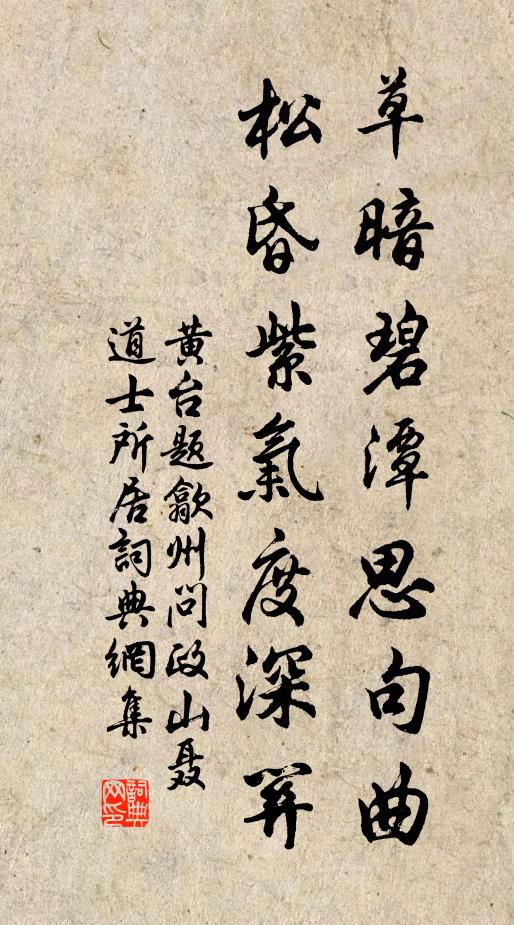 草暗碧潭思句曲
松昏紫氣度深關
黄台題歙州問政山聶
道士所居詞典網集
詞典
网印